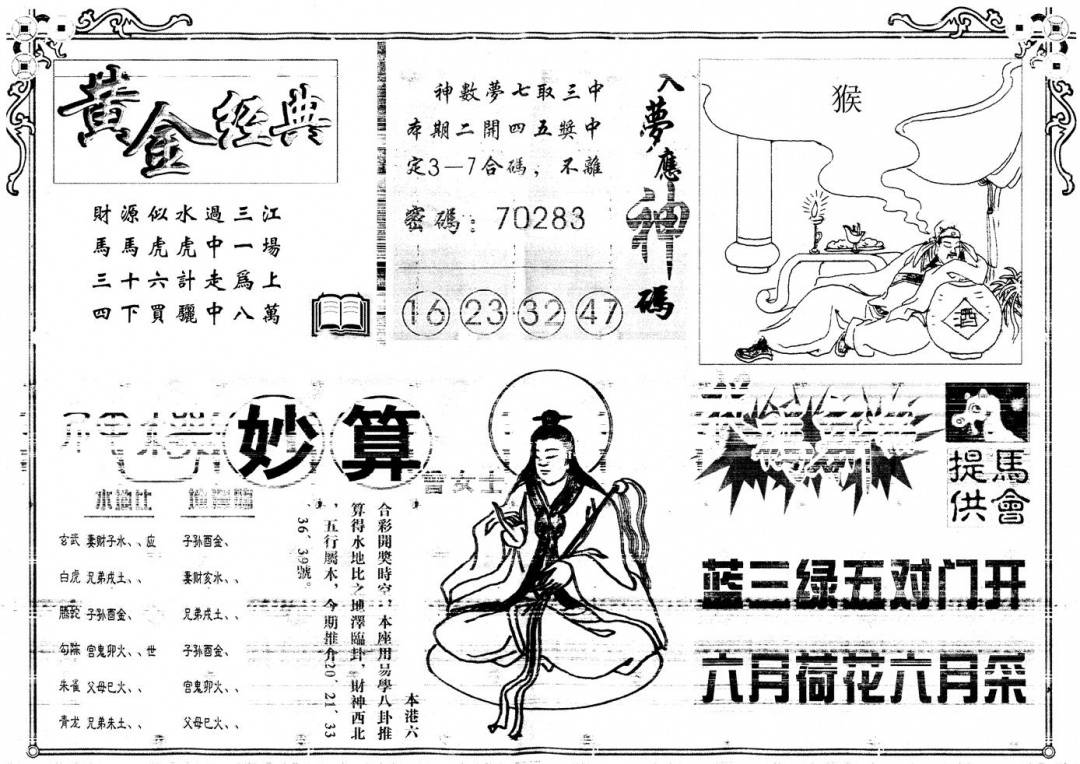 黄金经典
財源似水過三江
馬馬虎虎中一場
三十六計走爲上
四下買驪中八萬
神數夢七取三中
本期二開四五獎中
定3—7合碼，不離
密碼：70283
16 23 32 47
入夢應神碼
猴
酒
妙算
曾女士
水地比
玄武 妻财子水、、应 子孙酉金、
白虎 兄弟戌土、、 妻财亥水、、
螣蛇 子孙酉金、 兄弟戌土、、
勾陈 官鬼卯火、、世 子孙酉金、
朱雀 父母巳火、、 官鬼卯火、、
青龙 兄弟未土、、 父母巳火、、
本港六
合彩開獎時空，本座用易學八卦推
算得水地比之地澤臨卦，財神西北
，五行屬木，今期推介20、21、33
、36、39號。
馬會
提供
蓝三绿五对门开
六月荷花六月采